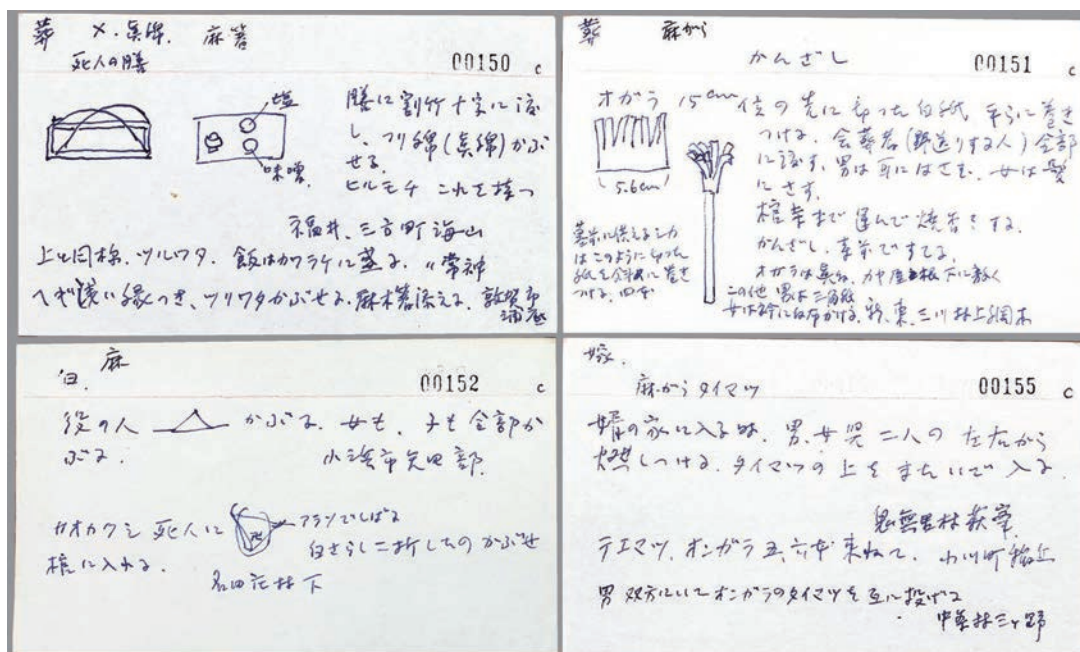 葬 メ.真綿. 麻箸
死人の膳
00150 c
塩
味噌
膳に割竹十字に渡
し、ツリ綿(真綿)かぶ
せる
ヒルモチ これを持つ
福井、三方町海山
上と同様、ツルワタ. 飯はカワラケに盛る. 〃常神
へぎ浅い縁つき、ツリワタかぶせる. 麻木箸添える. 敦賀市
浦底
葬 麻がら
かんざし
00151 c
オガラ 15cm位の先に切った白紙 平らに巻き
つける. 会葬者(野送りする人)全部
に渡す. 男は耳にはさむ. 女は髪
にさす.
棺 まで運んで焼香をする.
かんざし. 墓前ですてる.
5.6cm
墓前に供える
はこのように切った
紙を斜めに巻き
つける. 四本
オガラは 根下に敷く
この他 男は三角紙
女は に白布かける. 新、東、三川村上綱木
麻
白.
00152 c
役の人 かぶる. 女も、子も全部か
ぶる.
小浜市矢田部.
カオカクシ 死人に
アラソでしばる
白さらし二折したのかぶせ
棺に入れる.
名田庄村下
嫁.
麻がらタイマツ
00155 c
婿の家に入る時. 男、女児二人の左右から
燃しつける. タイマツの上をまたいで入る
鬼無里村萩峯
テエマツ. オンガラ五、六本束ねて. 小川町稲丘
男双方にいてオンガラのタイマツを互に投げる
中条村三ヶ野